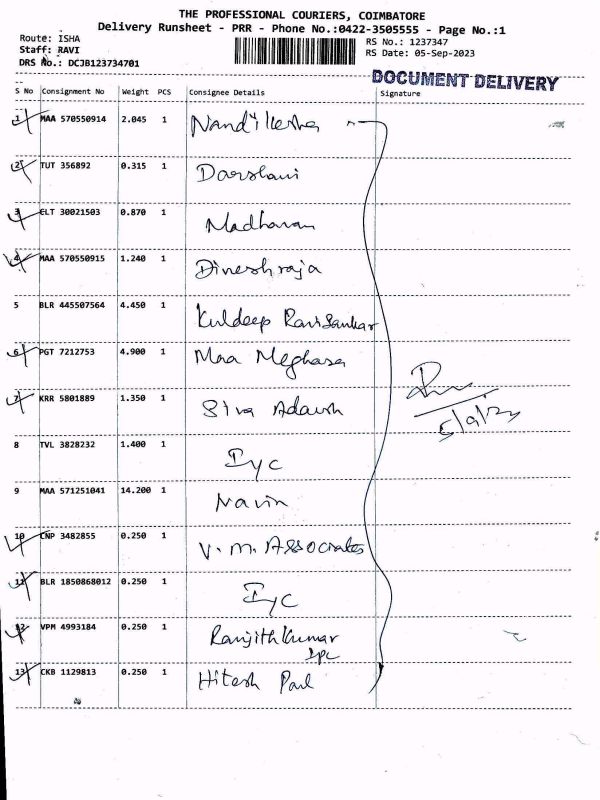 THE PROFESSIONAL COURIERS, COIMBATORE
Delivery Runsheet - PRR - Phone No.:0422-3505555 - Page No.:1
Route: ISHA
RS No.: 1237347
Staff: RAVI
RS Date: 05-Sep-2023
DRS No.: DCJB123734701
DOCUMENT DELIVERY
S No Consignment No Weight PCS Consignee Details Signature
1 MAA 570550914 2.045 1 Nandikesha
2 TUT 356892 0.315 1 Darshani
3 CLT 30021503 0.870 1 Madhavan
4 MAA 570550915 1.240 1 Dineshraja
5 BLR 445507564 4.450 1 Kuldeep Ravisankar
6 PGT 7212753 4.900 1 Maa Meghasa
7 KRR 5801889 1.350 1 Siva Adarsh
8 TVL 3828232 1.400 1 Iyc
9 MAA 571251041 14.200 1 Navin
10 CNP 3482855 0.250 1 V.M. Associates
11 BLR 1850868012 0.250 1 Iyc
12 VPM 4993184 0.250 1 Ranjithkumar
13 CKB 1129813 0.250 1 Hitesh Paul